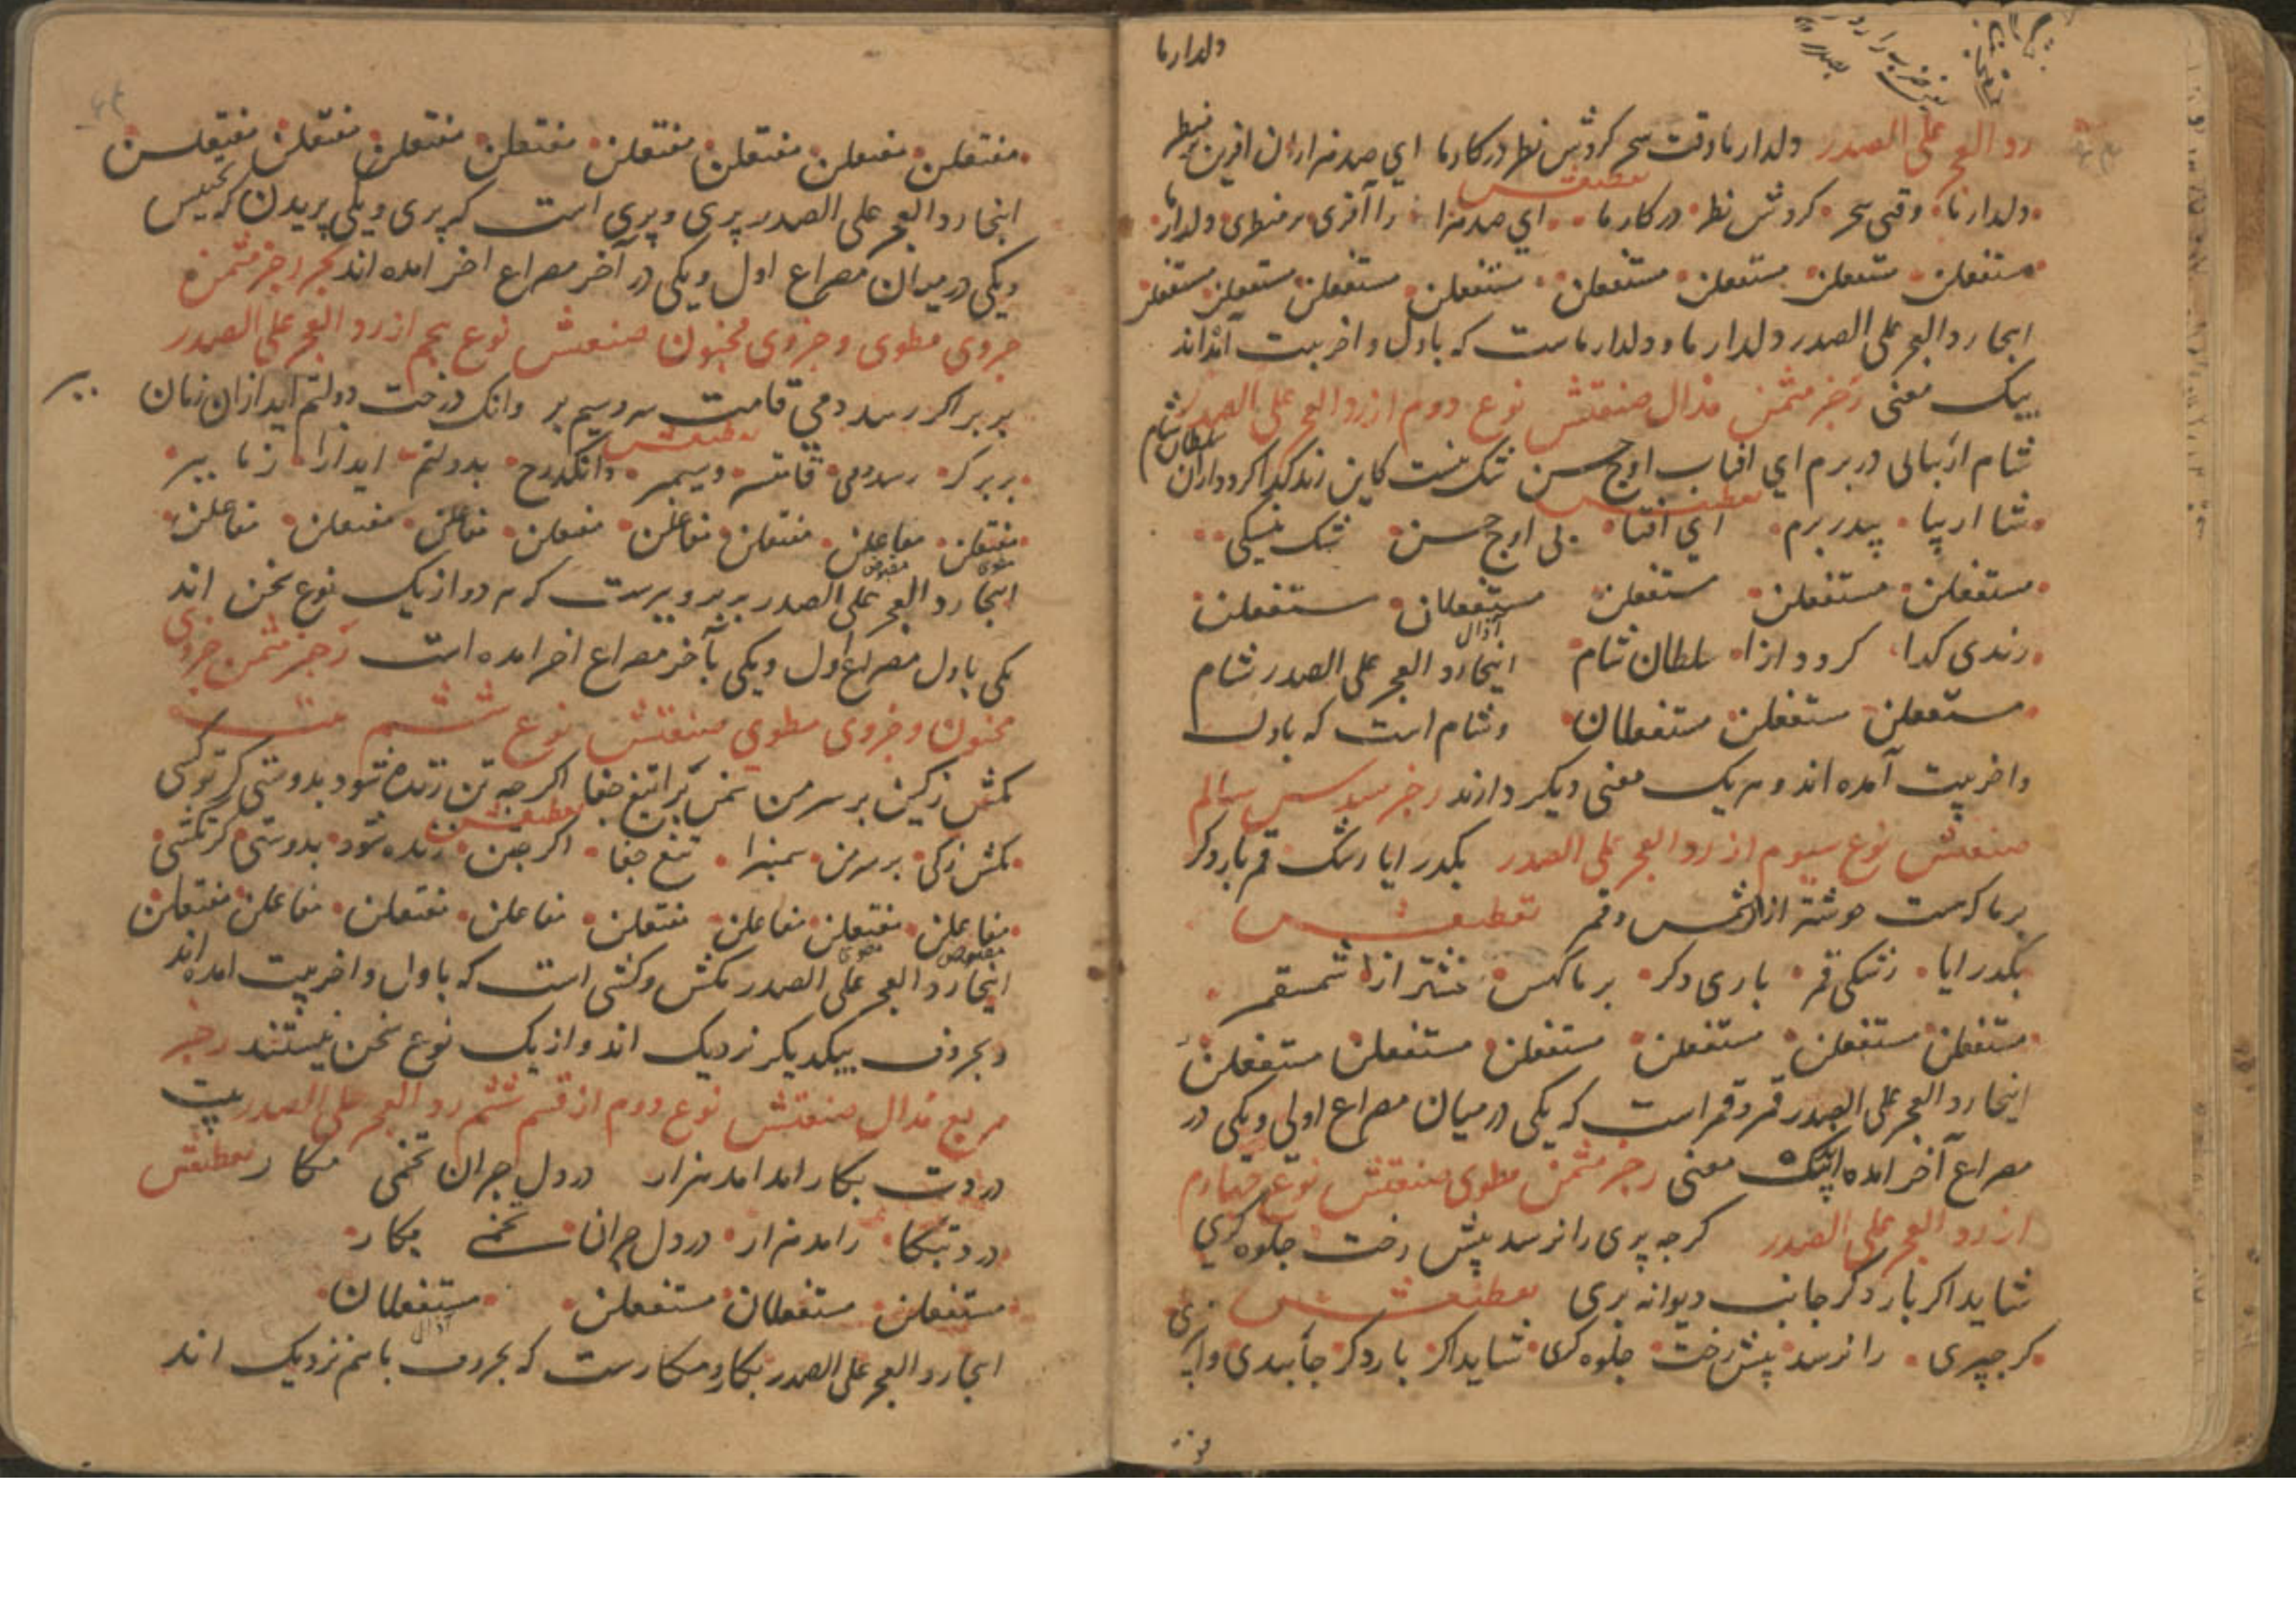 دلدار ما
رد العجز علی الصدر دلدار ما وقت سحر کردش نظر در کار ما ای صد هزاران افرین بر منظر
دلدار ما وقتی سحر کردش نظر در کار ما ای صد هزا را آفری بر منطری دلدار ما
تقطیعش
مستفعلن مستفعلن مستفعلن مستفعلن مستفعلن مستفعلن مستفعلن مستفعلن
اینجا رد العجز علی الصدر دلدار ما و دلدار ماست که باول و اخر بیت آمده‌اند
بیک معنی رجز مثمن مذال صنعتش نوع دوم از رد العجز علی الصدر
شام ار بیایی در برم ای افتاب اوج حسن شک نیست کاین رند کدا کردد از ان سلطان شام
تقطیعش
شا ار بیا ییدر برم ای افتا بی اوج حسن شک نیسکی
مستفعلن مستفعلن مستفعلن مستفعلان مستفعلن
رندی کدا کردد ازا سلطان شام اینجا رد العجز علی الصدر شام
مستفعلن مستفعلن مستفعلان و شام است که باول
و اخر بیت آمده اند و هر یک معنی دیکر دارند رجز مسدس سالم
صنعتش نوع سیوم از رد العجز علی الصدر بکدر ایا رشک قمر بار دکر
بر ما که هست از شمس و قمر تقطیعش
بکدر ایا رشکی قمر باری دکر بر ما کهس ازا شمسقمر
مستفعلن مستفعلن مستفعلن مستفعلن مستفعلن مستفعلن
اینجا رد العجز علی الصدر قمر و قمر است که یکی در میان مصراع اولی و یکی در
مصراع آخر امده بیک معنی رجز مثمن مطوی صنعتش نوع چهارم
از رد العجز علی الصدر کرچه پری را نرسد پیش رخت جلوه کری
شاید اکر بار دکر جانب دیوانه پری تقطیعش
کرچپری را نرسد پیش رخت جلوه کری شاید اکر بار دکر جانبدی وانپری
مفتعلن مفتعلن مفتعلن مفتعلن مفتعلن مفتعلن مفتعلن مفتعلن
اینجا رد العجز علی الصدر پری و پری است که پری و یکی پریدن که
و یکی در میان مصراع اول و یکی در آخر مصراع اخر امده اند بحر رجز مثمن
جزوی مطوی و جزوی مخبون صنعتش نوع پنجم از رد العجز علی الصدر
ببر اکر رسد دمی قامت سرو سیم بر وانک درخت دولتم اید ازان زمان ببر
تقطیعش
ببر کر رسددمی قامتسر وسیمبر وانکدرخ بدولتم ایدازا زما ببر
مفتعلن مفاعلن مفتعلن مفاعلن مفتعلن مفاعلن مفتعلن مفاعلن
اینجا رد العجز علی الصدر ببر و ببرست که هر دو از یک نوع سخن اند
یکی باول مصراع اول و یکی بآخر مصراع اخر امده است رجز مثمن جزوی
مخبون و جزوی مطوی صنعتش نوع ششم
مکش زکین بر سر من سمن برا تیغ جفا اکر چه تن زنده شود بدوستی کر تو کشی
تقطیعش
مکش زکی بر سر من سمنبرا تیغ جفا اکر چتن زنده شود بدوستی کرتکشی
مفاعلن مفتعلن مفاعلن مفتعلن مفاعلن مفتعلن مفاعلن مفتعلن
اینجا رد العجز علی الصدر مکش و کشی است که باول و اخر بیت امده اند
و بحروف بیکدیکر نزدیک اند و از یک نوع سخن نیستند رجز
مربع مذال صنعتش نوع دوم از قسم ششم رد العجز علی الصدر بیت
دردت بکار امد امد هزار در دل جران تخمی مکار تقطیعش
دردتبکا رامد هزار در دل جران تخمی مکار
مستفعلن مستفعلان مستفعلن مستفعلان
اینجا رد العجز علی الصدر بکار و مکارست که بحروف باهم نزدیک اند